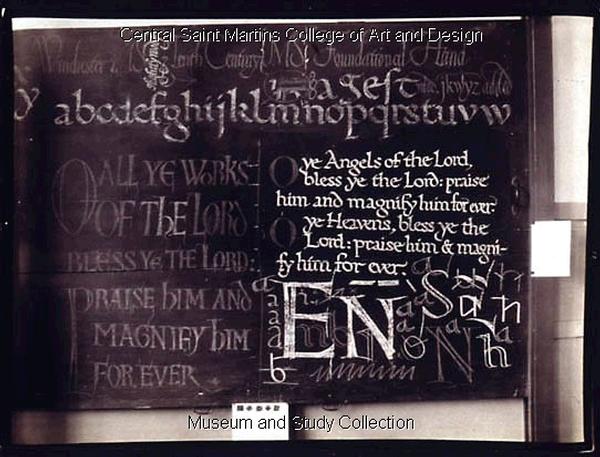 Central Saint Martins College of Art and Design
Winchester Tenth Century MS. Foundational Hand
a g e s t
jkvwyz added
y
abcdefghijklmnopqrstuvw
O ALL YE WORKS
OF THE LORD
BLESS YE THE LORD:
PRAISE HIM AND
MAGNIFY HIM
FOR EVER
O ye Angels of the Lord,
bless ye the Lord: praise
him and magnify him for ever.
O ye Heavens, bless ye the
Lord: praise him & magni-
fy him for ever.
EN
Museum and Study Collection